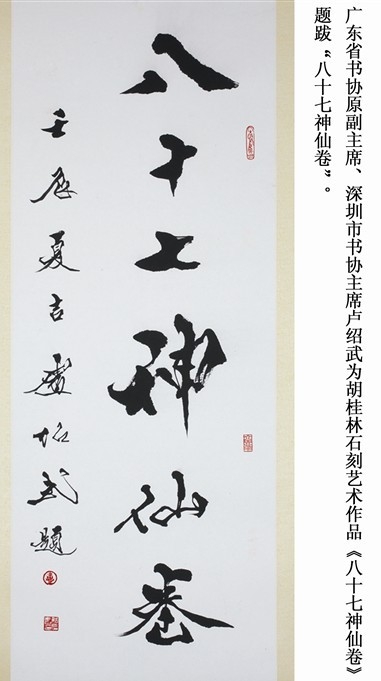 广东省书协原副主席、深圳市书协主席卢绍武为胡桂林石刻艺术作品《八十七神仙卷》
题跋“八十七神仙卷”。
八十七神仙卷
壬辰夏吉盧紹武題